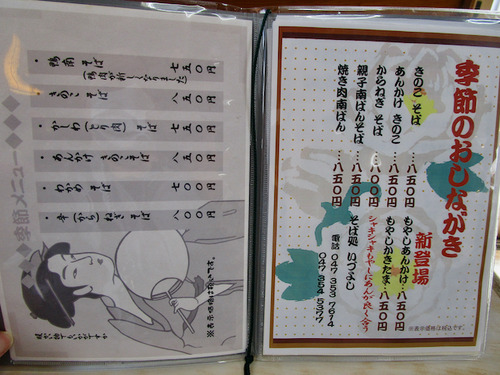 季節のおしながき
きのこ そば …八五〇円
あんかけ きのこ …八五〇円
からねぎ そば …八〇〇円
親子南ばんそば …八五〇円
焼き肉南ばん …八五〇円
新登場
もやしあんかけ…八五〇円
もやしかきたま…八五〇円
シャキシャキもやしにあんが良く合う
そば処 いづよし
電話 047 353 7614
047 354 5377
※表示価格は税込です。
季節メニュー
・鴨南 そば 七五〇円
(鴨肉が新しくなりました)
・きのこ そば 八五〇円
・かしわ(とり肉) そば 七五〇円
・あんかけ きのこ そば 八五〇円
・わかめ そば 七〇〇円
・辛(から)ねぎ そば 八〇〇円
※表示価格は税込です。